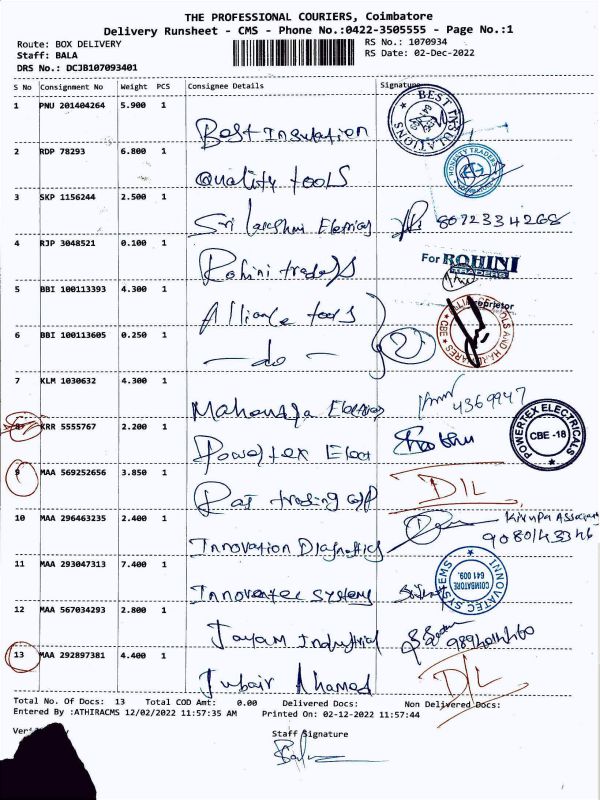 THE PROFESSIONAL COURIERS, Coimbatore
Delivery Runsheet - CMS - Phone No.:0422-3505555 - Page No.:1
Route: BOX DELIVERY
RS No.: 1070934
Staff: BALA
RS Date: 02-Dec-2022
DRS No.: DCJB107093401
S No Consignment No Weight PCS Consignee Details Signature
1 PNU 201404264 5.900 1 Best Insulation
BEST INSULATIONS
2 RDP 78293 6.800 1 Quality tools
3 SKP 1156244 2.500 1 Sri Lakshmi
4 RJP 3048521 0.100 1 Rohini traders
For ROHINI TRADERS
Proprietor
5 BBI 100113393 4.300 1 Alliance tools
6 BBI 100113605 0.250 1 — do — 2
CBE
7 KLM 1030632 4.300 1
4369947
8 KRR 5555767 2.200 1 Powertex Elect Prabhu
POWERTEX ELECTRICALS
CBE -18
9 MAA 569252656 3.850 1 Raj trading D/L
10 MAA 296463235 2.400 1 Innovation Diagnostics
11 MAA 293047313 7.400 1 Innovatec Systems
INNOVATEC SYSTEMS
COIMBATORE
641 009.
12 MAA 567034293 2.800 1 Jayam Industrial
13 MAA 292897381 4.400 1 Jubair Ahamed D/L
Total No. Of Docs: 13 Total COD Amt: 0.00 Delivered Docs: Non Delivered Docs:
Entered By :ATHIRACMS 12/02/2022 11:57:35 AM Printed On: 02-12-2022 11:57:44
Staff Signature